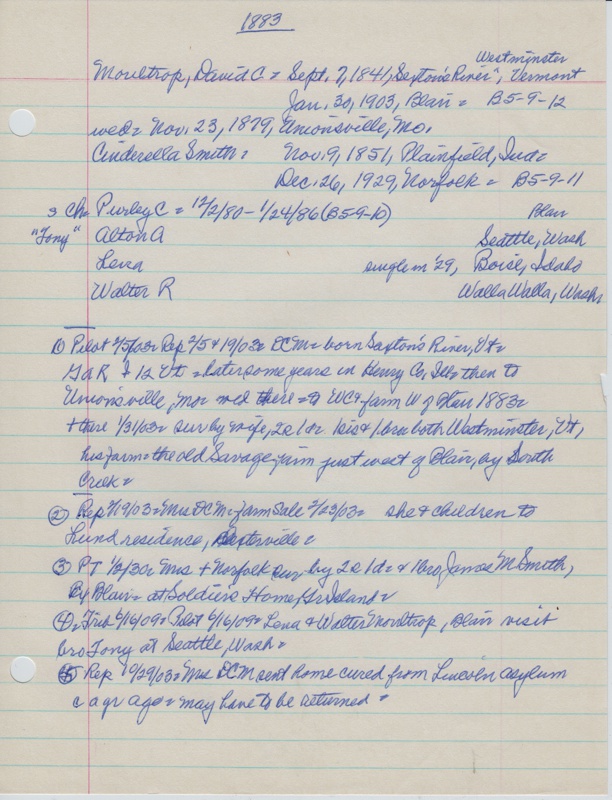 1883
Westminster
Moultrop, David C = Sept. 7, 1841, Saxton's River", Vermont
Jan. 30, 1903, Blair = B5-9-12
wed = Nov. 23, 1879, Unionsville, Mo.
Cinderella Smith = Nov 9, 1851, Plainfield, Ind =
Dec. 26, 1929, Norfolk = B5-9-11
3 Ch = Purley C = 12/2/80 - 1/24/86 (B5-9-10) Blair
"Tony" Alton A Seattle, Wash
Lena single in '29, Boise, Idaho
Walter R Walla Walla, Wash
1) Pilot 2/5/03 = Rep 2/5 & 19/03 = DCM = born Saxton's River, Vt =
GAR 12 Vt = later some years in Henry Co, Ill = then to
Unionsville, Mo = wed there = to WC & farm W of Blair 1883 =
+ here 1/31/03 = sur by wife, 2s 1d = & 1 bro both Westminster, Vt,
his farm = the old Savage farm just west of Blair, by South
Creek =
2 Rep 2/19/03 = Mrs DCM = farm sale 2/23/03 = she & children to
Lund residence, =
3 PT 1/2/30 = Mrs + Norfolk sur by 2s 1d = & 1 bro James M Smith,
Blair = at Soldiers Home, Gr Island =
4 = Trib 6/16/09 = Pilot 6/16/09 = Lena & Walter Moultrop, Blair visit
bro Tony at Seattle, Wash =
5 Rep 10/29/03 = Mrs DCM sent home cured from Lincoln asylum
c a yr ago = may have to be returned =